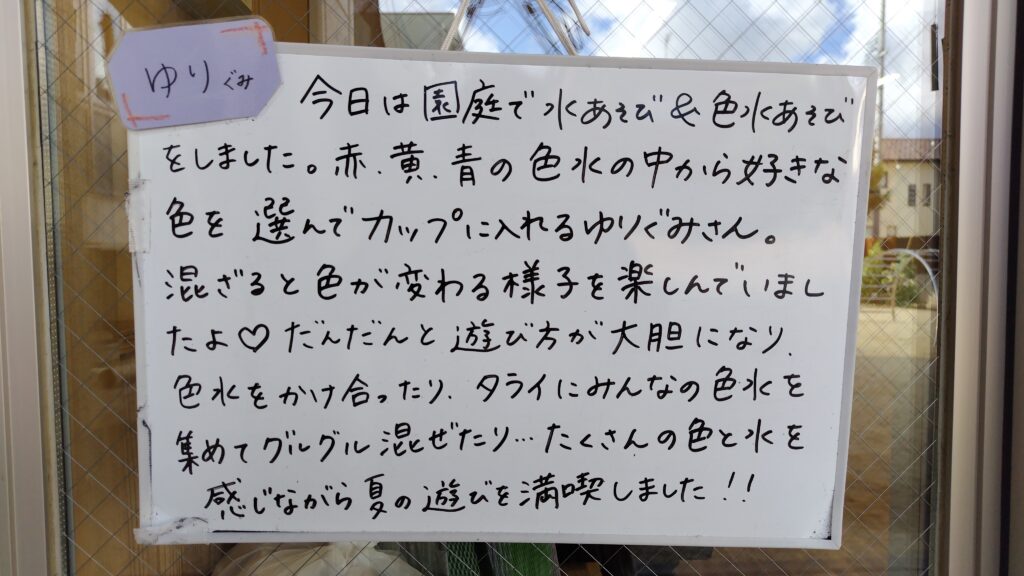 ゆりぐみ
今日は園庭で水あそび&色水あそび
をしました。赤、黄、青の色水の中から好きな
色を選んでカップに入れるゆりぐみさん。
混ざると色が変わる様子を楽しんでいまし
たよ♡だんだんと遊び方が大胆になり、
色水をかけ合ったり、タライにみんなの色水を
集めてグルグル混ぜたり…たくさんの色と水を
感じながら夏の遊びを満喫しました!!